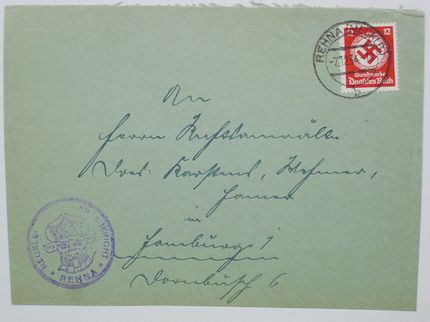 REHNA (MECKLB)
12 12
Dienstmarke
Deutsches Reich
An
Herrn Rechtsanwälte
Dres: Karstens, Wehmer,
in
Hamburg 1
Dornbusch 6
MECKLB. AMTSGERICHT
* REHNA *